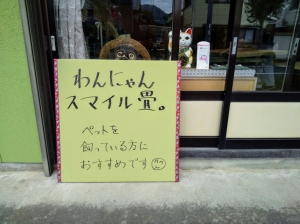 わんにゃん
スマイル畳。
ペットを
飼っている方に
おすすめです